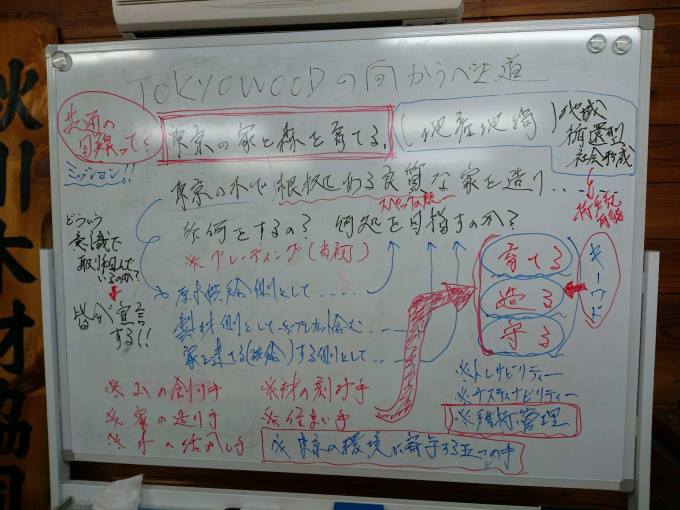 TOKYOWOODの向かうべき道
共通の
目線って?
東京の家と森を育てる。
(地産地消)
地域
循環型
社会形成
ミッション!!
東京の木で根拠ある良質な家を造り……
どういう
意識で
取り組んで
いるのか?
皆が宣言
する!!
何をするの? 何処を目指すのか?
※グレーディング(当初)
原木供給側として……
製材側として
家を建てる(供給)する側として…
育てる
造る
守る
キーワード
※トレサビリティー
※サスティナビリティー
※維持管理
※山の創り手
※材の刻み手
※家の造り手
※住まい手
※木の活かし手
※東京の環境に寄与する五つの手
秋川木材協同